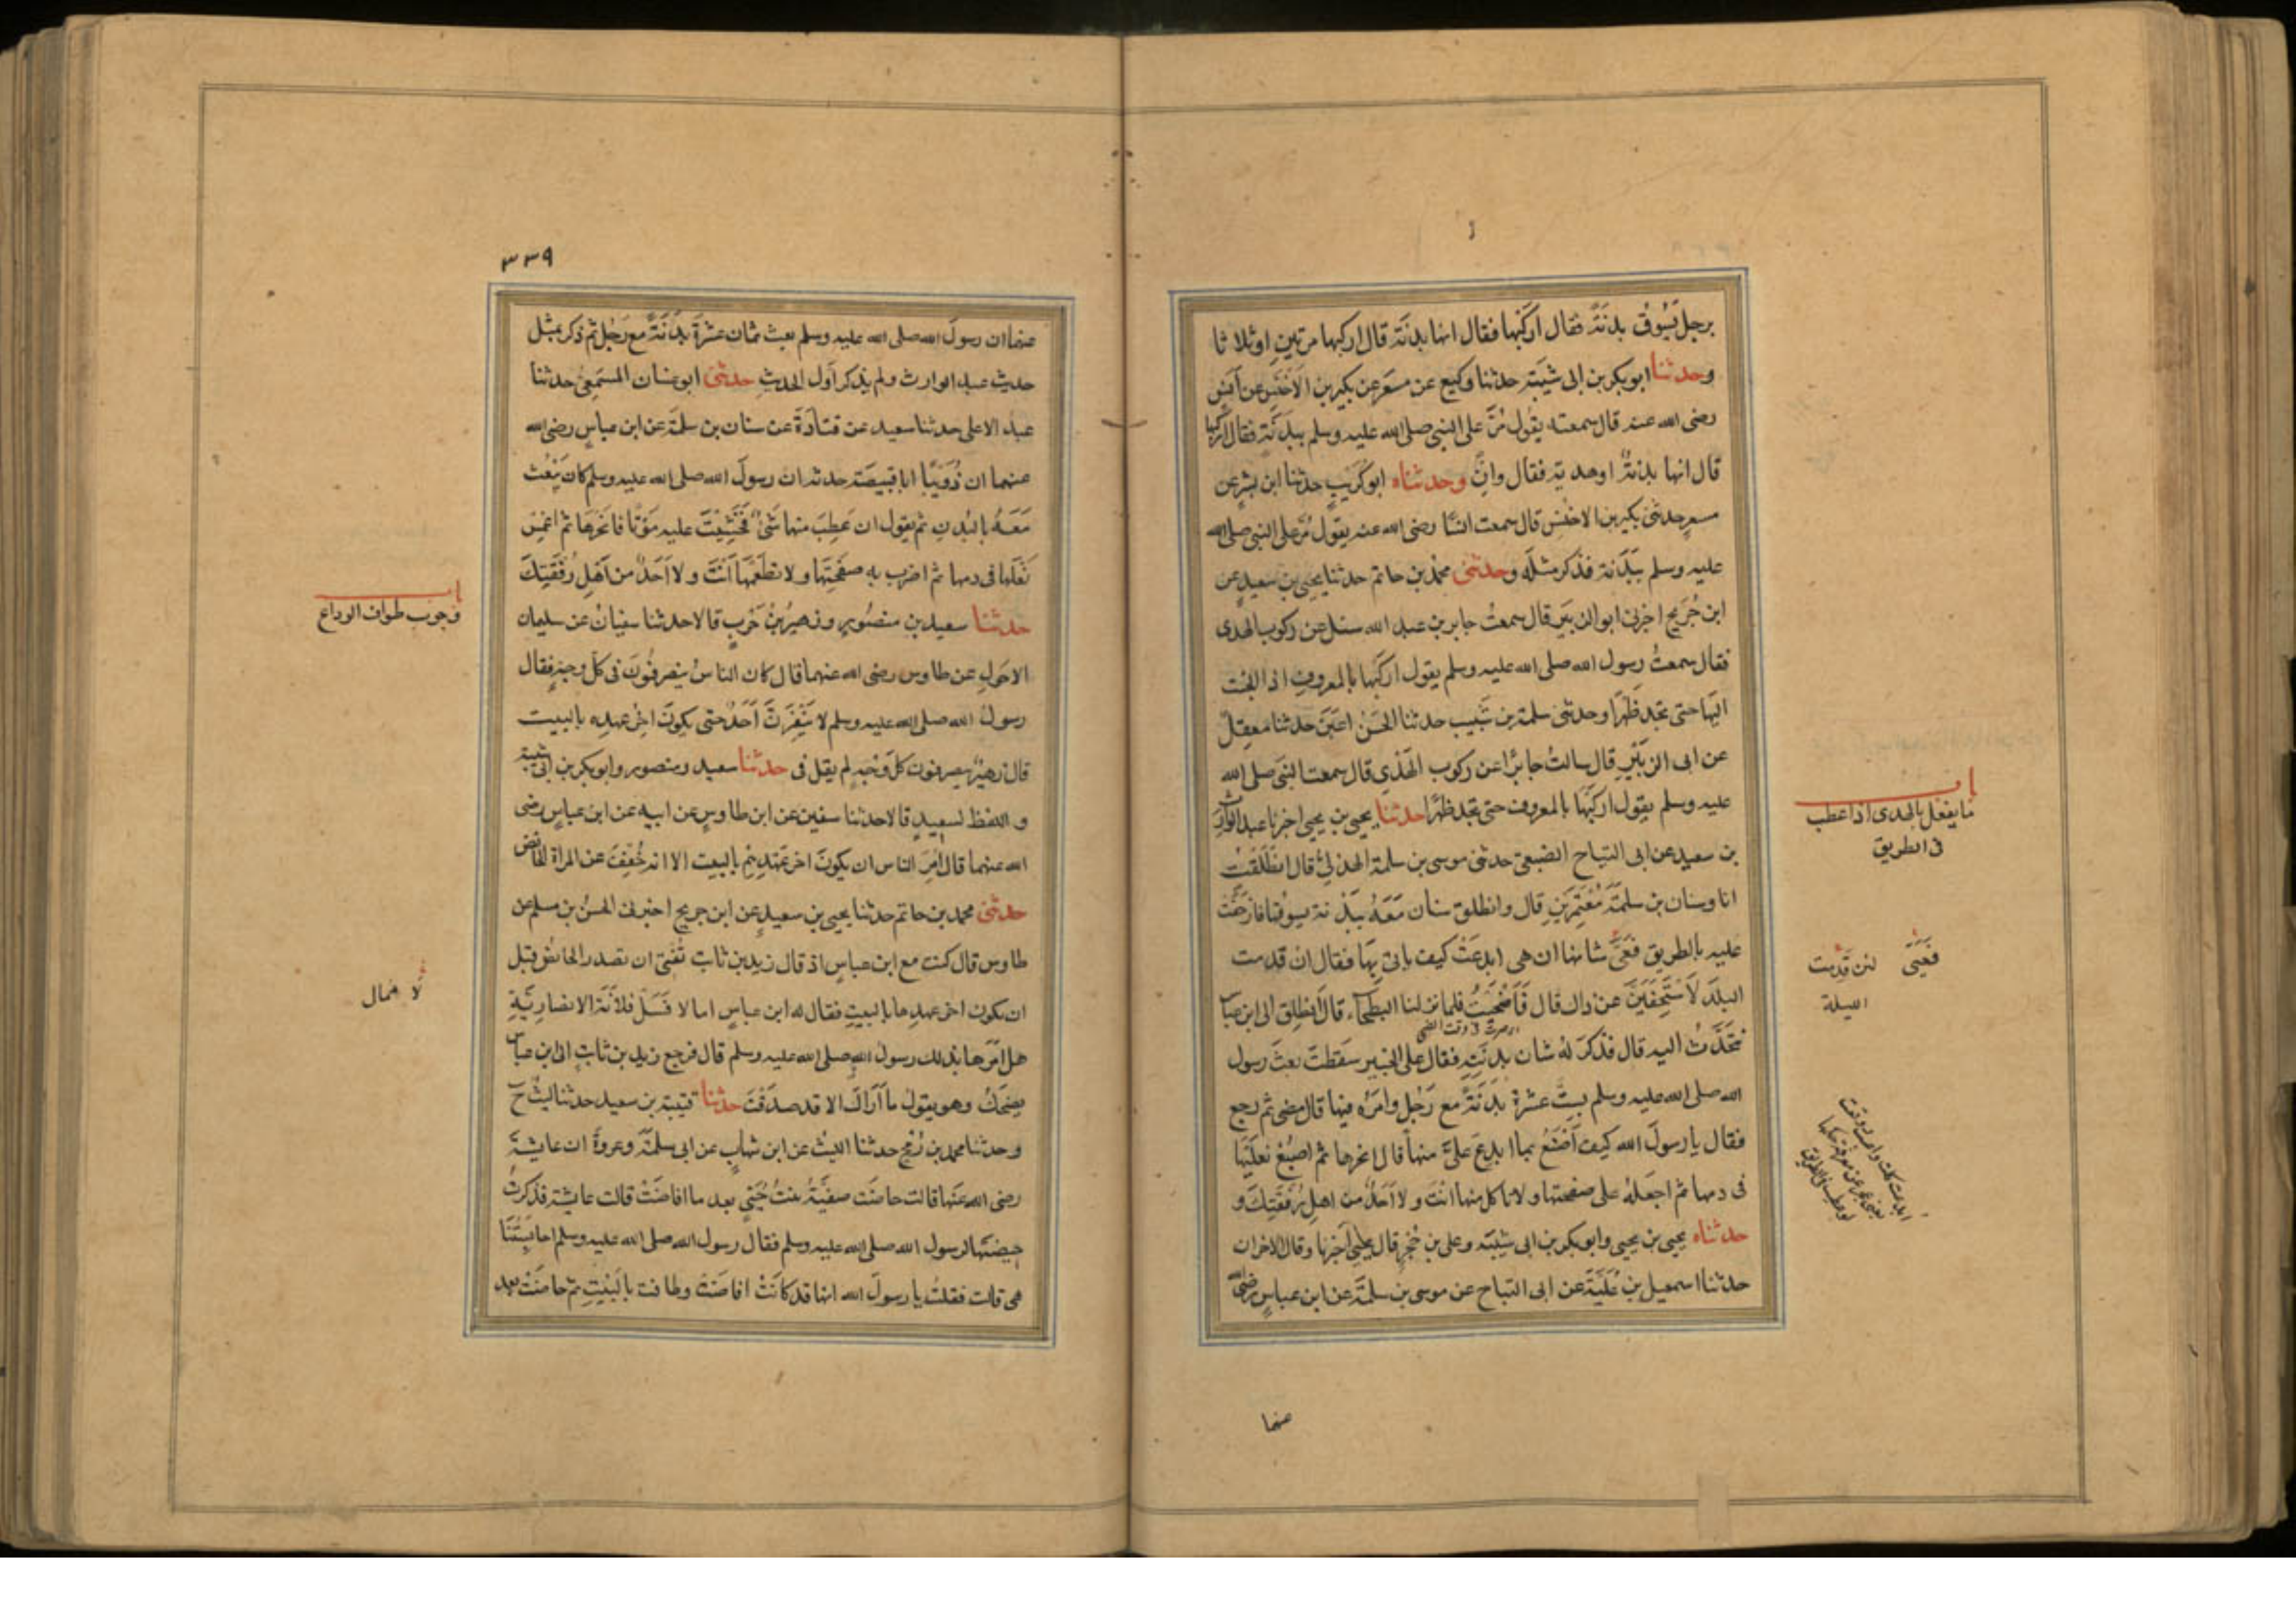 برجل يَسُوقُ بدنَةً فقال اركَبْها فقال انها بدنَة قال اركبها مرتين او ثلاثا
وحدثنا ابو بكر بن ابى شيبَة حدثنا وكيع عن مسعَر عن بكير بن الاخنَس عن اَنَسٍ
رضى الله عنه قال سمعته يقول مُرَّ على النبى صلى الله عليه وسلم ببدَنَة فقال اركبها
قال انها بدنةٌ او هدية فقال وانْ وحدثناه ابو كُرَيبٍ حدثنا ابن بشرٍ عن
مسعرٍ حدثنى بكير بن الاخنس قال سمعت انسًا رضى الله عنه يقول مُرَّ على النبى صلى الله
عليه وسلم ببَدَنة فذكر مثلَه وحدثنى محمد بن حاتم حدثنا يحيى بن سعيدٍ عن
ابن جُرَيج اخبرنى ابو الزبَير قال سمعتُ جابر بن عبد الله سئل عن ركوب الهدى
فقال سمعتُ رسول الله صلى الله عليه وسلم يقول اركَبْها بالمعروفِ اذا الجئت
اليَها حتى تجد ظَهْرًا وحدثنى سلمة بن شَبيب حدثنا الحَسَنُ اعيَنَ حدثنا مَعقِلٌ
عن ابى الزبَيْر قال سالتُ جابرًا عن ركوب الهَدْي قال سمعت النبىَ صلى الله
عليه وسلم يقول اركبْها بالمعروف حتى تجد ظهْرًا حدثنا يحيى بن يحيى اخبرنا عبد الوارث
بن سعيد عن ابى التياح الضبعى حدثنى موسى بن سلمة الهذلىُّ قال انطَلَقتُ
انا وسنان بن سلمَةَ مُعْتَمِرَيْنِ قال وانطلق سنان مَعَهُ ببَدَنة يسوقها فازحَفَتْ
عليه بالطريق فَعَىَّ شانها ان هى ابدعَتْ كيف ياتى بِهَا فقال ان قدمت
البلَدَ لاَسْتَحفِيَنَّ عن ذاك قال فَاَضْحَيْتُ فلما نزلنا البطحَاء قال انطلِق الى ابن عباس
نتحَدَّثْ اليه قال فذكَرَ لهُ شان بدنَتِهِ فقال على الخبير سَقَطتَ بعثَ رسول
الله صلى الله عليه وسلم بستَّ عشرةَ بَدَنَةً مع رَجُلٍ وامَّرَه فيها قال مضى ثم رجع
فقال يا رسولَ الله كيف اَصْنَعُ بما ابدِعَ علىَّ منها قال انحرها ثم اصبُغ نعلَيْهَا
فى دمها ثم اجعَلهُ على صفحتها ولا تاكل منها انتَ ولا احَدٌ من اهلِ رُفقَتِكَ و
حدثناه يحيى بن يحيى وابو بكر بن ابى شيبَة وعلى بن حُجْرٍ قال يحيى اخبرنا وقال الاخران
حدثنا اسمعيل بن عُلَيَّةَ عن ابى التياح عن موسى بن سلمَة عن ابن عباسٍ رضى الله
عنهما
باب
ما يفعل بالهدى اذا عطب
فى الطريق
فَعَيِىَ لئن قَدِمت
الليلة
٣٣٩
عنهما ان رسولَ الله صلى الله عليه وسلم بعث بثمان عشْرَةَ بدَنَةً مع رَجُلٍ ثم ذكر بمثل
حديث عبد الوارث ولم يذكر اَول الحديثِ حدثنى ابو غسان المسمَعِىُّ حدثنا
عبد الاعلى حدثنا سعيد عن قتادَةَ عن سنان بن سلمَة عن ابن عباسٍ رضى الله
عنهما ان ذُوَيْبًا ابا قبيصَة حدثه ان رسولَ الله صلى الله عليه وسلم كان يَبْعَث
مَعَهُ بالبُدنِ ثم يقول ان عَطِبَ منها شئٌ فَخَشِيْتَ عليه مَوْتًا فانحَرْهَا ثم اغمِسْ
نَعْلَها فى دمها ثم اضرب به صفحَتَها ولا تطعَمْهَا اَنتَ ولا اَحَدٌ من اَهْلِ رُفْقَتِكَ
حدثنا سعيد بن منصُورٍ وزهيرُ بْنُ حَرْبٍ قالا حدثنا سفيانُ عن سليمان
الاحوَلِ عن طاوس رضى الله عنهما قال كان الناسُ ينصرفُونَ فى كل وجهٍ فقال
رسولُ الله صلى الله عليه وسلم لا يَنْفِرَنَّ اَحَدٌ حتى يكونَ اخِرُ عهدِه بالبيت
قال زهيرٌ ينصرفون كلَّ وَجْهٍ لم يقل فى حدثنا سعيد بن منصور وابو بكر بن ابى شيبة
واللفظ لسعيدٍ قالا حدثنا سفين عن ابن طاوسٍ عن ابيه عن ابن عباسٍ رضى
الله عنهما قال اُمِرَ الناس ان يكونَ اخر عَهْدِهِمْ بالبيت الا انه خُفِّفَ عن المراة الحائض
حدثنى محمد بن حاتم حدثنا يحيى بن سعيدٍ عن ابن جريج اخبرنى الحسَنُ بن مسلم عن
طاوس قال كنت مع ابن عباسٍ اذ قال زيد بن ثابت تُفتِىْ ان تصدر الحائض قبل
ان يكون اخر عهدِها بالبيتِ فقال له ابن عباسٍ اما لا فَسَلْ فلاَنَةَ الانصارِيَّةِ
هل امَرَها بذلك رسولُ اللهِ صلى الله عليه وسلم قال فرجع زيد بن ثابتٍ الى ابن عباس
يضحَكُ وهو يقول ما اَراكَ الا قد صدقتَ حدثنا قتيبة بن سعيد حدثنا ليثٌ ح
وحدثنا محمد بن رُمْحٍ حدثنا الليثُ عن ابن شهابٍ عن ابى سلمَةَ وعروةَ ان عايشَةَ
رضى الله عَنْها قالت حاضَت صفيَّةُ بنتُ حُيَيٍّ بعد ما افاضَتْ قالت عايشة فذكرتُ
حيضَتَها لرسول الله صلى الله عليه وسلم فقال رسول الله صلى الله عليه وسلم احابِسَتُنَا
هى قالت فقلتُ يا رسولَ الله انها قد كانَتْ افاضَتْ وطافت بالبَيْتِ ثم حاضَتْ بعد
باب
وجوب طواف الوداع